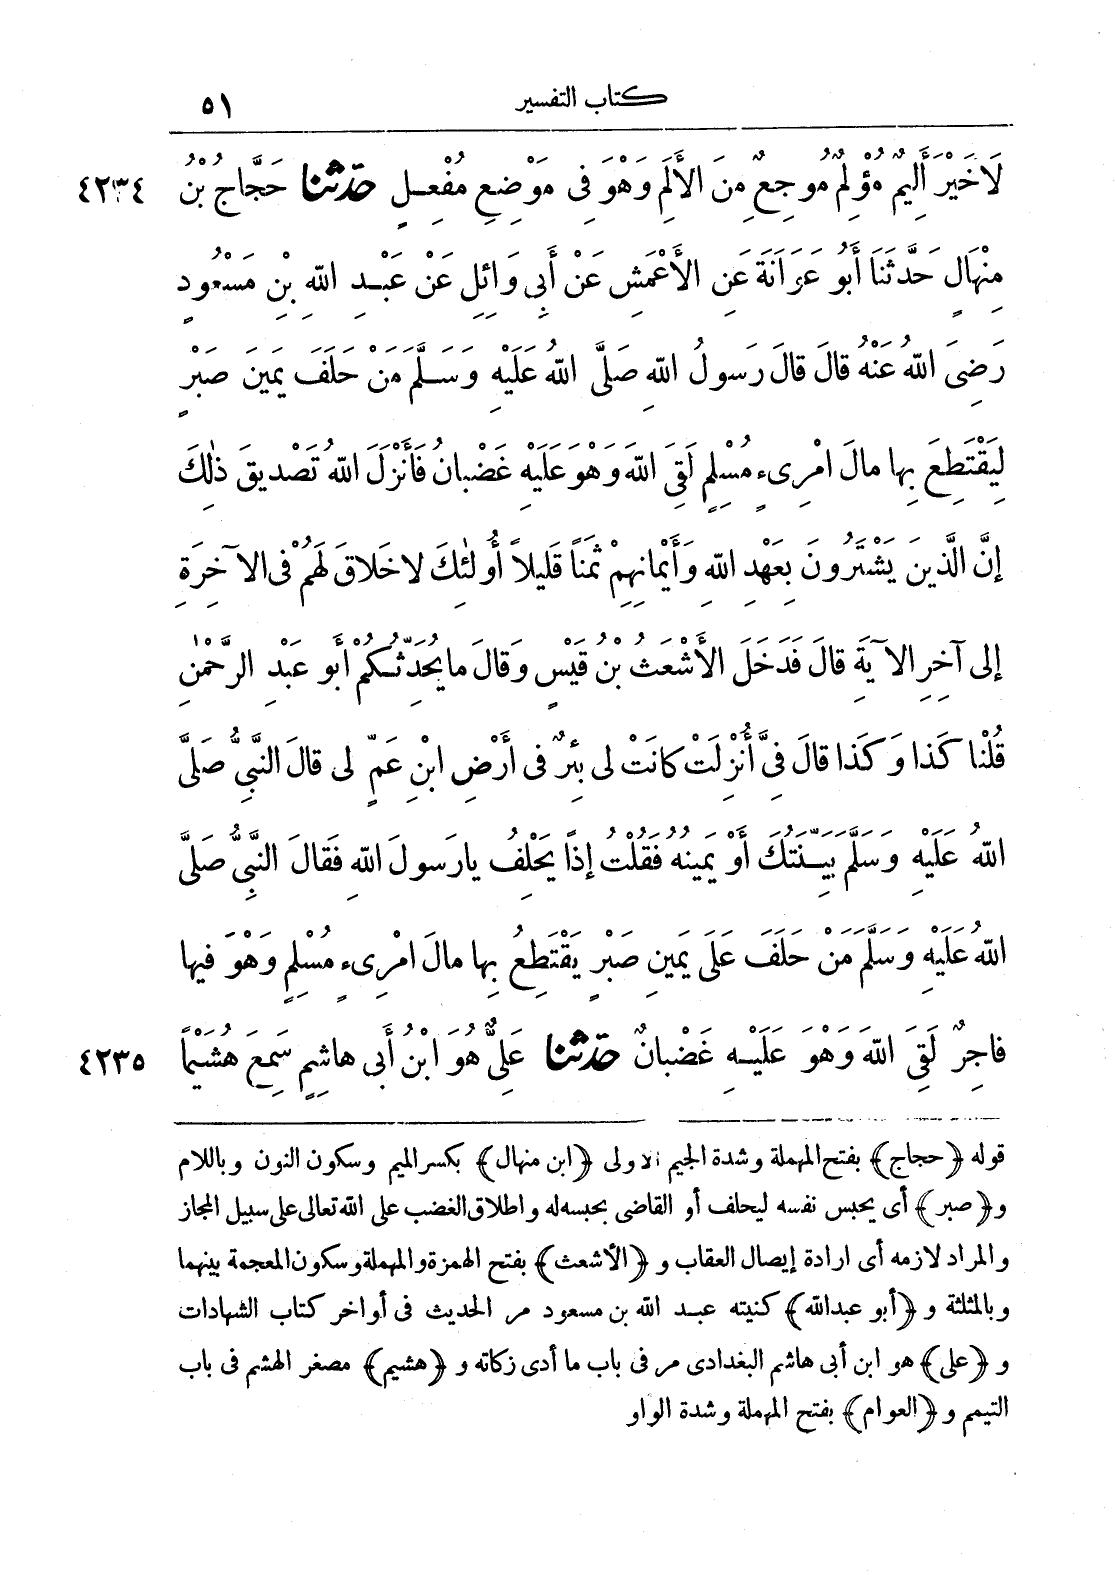 كتاب التفسير ٥١
لَا خَيْرَ أَلِيمٌ مُؤْلِمٌ مُوجِعٌ مِنَ الْأَلَمِ وَهْوَ فِى مَوْضِعِ مُفْعِلٍ حَدَّثَنَا حَجَّاجُ بْنُ ٤٢٣٤
مِنْهَالٍ حَدَّثَنَا أَبُو عَوَانَةَ عَنِ الْأَعْمَشِ عَنْ أَبِى وَائِلٍ عَنْ عَبْدِ اللهِ بْنِ مَسْعُودٍ
رَضِىَ اللهُ عَنْهُ قَالَ قَالَ رَسُولُ اللهِ صَلَّى اللهُ عَلَيْهِ وَسَلَّمَ مَنْ حَلَفَ يَمِينَ صَبْرٍ
لِيَقْتَطِعَ بِهَا مالَ امْرِىءٍ مُسْلِمٍ لَقِىَ اللهَ وَهْوَ عَلَيْهِ غَضْبانُ فَأَنْزَلَ اللهُ تَصْدِيقَ ذٰلِكَ
إِنَّ الَّذِينَ يَشْتَرُونَ بِعَهْدِ اللهِ وَأَيْمَانِهِمْ ثَمَنًا قَلِيلاً أُولٰئِكَ لا خَلاقَ لَهُمْ فِى الآخِرَةِ
إِلى آخِرِ الآيَةِ قالَ فَدَخَلَ الأَشْعَثُ بْنُ قَيْسٍ وَقالَ ما يُحَدِّثُكُمْ أَبو عَبْدِ الرَّحْمٰنِ
قُلْنا كَذا وَكَذا قالَ فِىَّ أُنْزِلَتْ كانَتْ لى بِئْرٌ فى أَرْضِ ابْنِ عَمٍّ لى قالَ النَّبِىُّ صَلَّى
اللهُ عَلَيْهِ وَسَلَّمَ بَيِّنَتُكَ أَوْ يَمِينُهُ فَقُلْتُ إِذًا يَحْلِفُ يارَسولَ اللهِ فَقالَ النَّبِىُّ صَلَّى
اللهُ عَلَيْهِ وَسَلَّمَ مَنْ حَلَفَ عَلَى يَمِينِ صَبْرٍ يَقْتَطِعُ بِها مالَ امْرِىءٍ مُسْلِمٍ وَهْوَ فيها
فاجِرٌ لَقِىَ اللهَ وَهْوَ عَلَيْهِ غَضْبانٌ حَدَّثَنَا عَلِىٌّ هُوَ ابْنُ أَبِى هاشِمٍ سَمِعَ هُشَيْمًا ٤٢٣٥
قوله ﴿حجاج﴾ بفتح المهملة وشدة الجيم الاولى ﴿ابن منهال﴾ بكسر الميم وسكون النون وباللام
و﴿صبر﴾ أى يحبس نفسه ليحلف أو القاضى بحبسه له واطلاق الغضب على الله تعالى على سبيل المجاز
والمراد لازمه أى ارادة إيصال العقاب و﴿الأشعث﴾ بفتح الهمزة والمهملة وسكون المعجمة بينهما
وبالمثلثة و﴿أبو عبدالله﴾ كنيته عبد الله بن مسعود مر الحديث فى أواخر كتاب الشهادات
و﴿على﴾ هو ابن أبى هاشم البغدادى مر فى باب ما أدى زكاته و﴿هشيم﴾ مصغر الهشم فى باب
التيمم و﴿العوام﴾ بفتح المهملة وشدة الواو